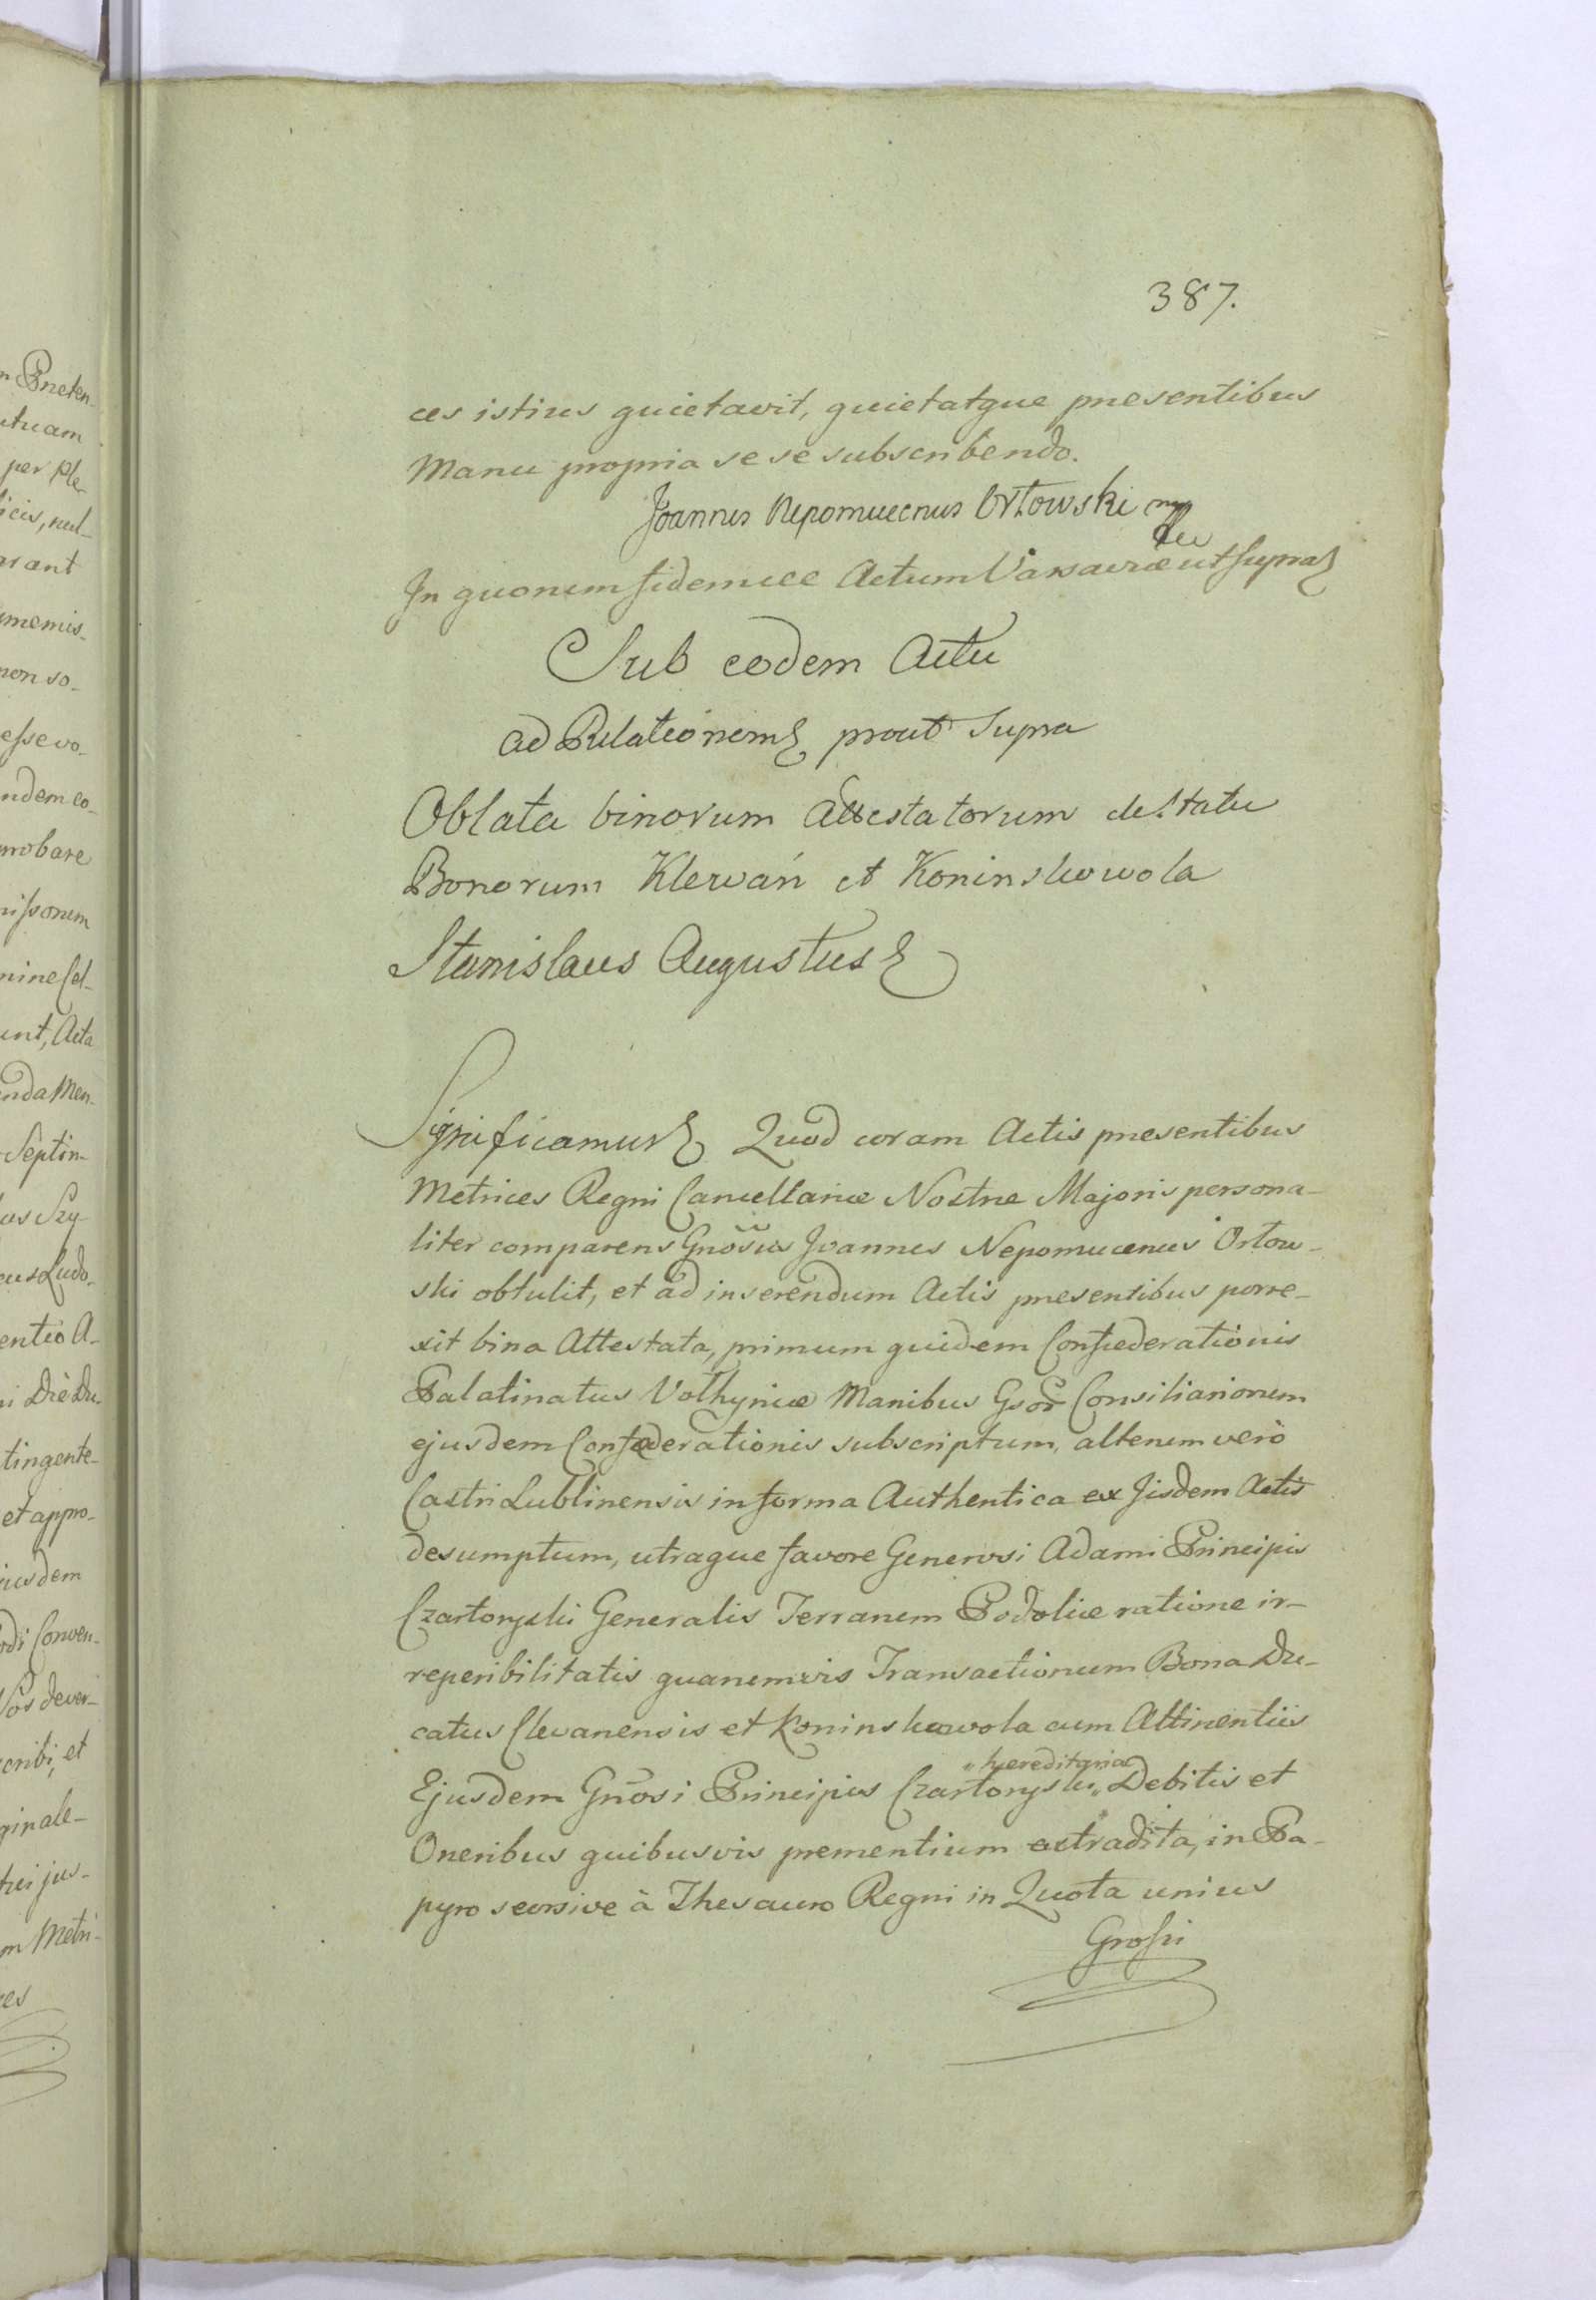 387.
ces istius quietavit, quietatque presentibus
Manu propria se se subscribendo.
Joannes Nepomucenus Orłowski mp
In quorum fidem ece Actum Varsaviæ ut supra
Sub eodem Actu
ad Relationem prout supra
Oblata binorum Attestatorum de Statu
Bonorum Klewań et Koninskowola
Stanislaus Augustus
Significamus Quod coram Actis presentibus
Metrices Regni Cancellariæ Nostræ Majoris persona-
liter comparens Gnosus Joannes Nepomucenus Orłow-
ski obtulit, et ad inserendum Actis presentibus porre-
xit bina Attestata, primum quidem Confœderationis
Palatinatus Volhyniæ Manibus Gsor Consiliariorum
ejusdem Confœderationis subscriptum, alterum verò
Castri Lublinensis in forma Authentica ex Jisdem Actis
desumptum, utraque favore Generosi Adami Principis
Czartoryski Generalis Terrarum Podoliæ ratione ir-
reperibilitatis quarumvis Transactionum Bona Du-
catus Clevanensis et Koninskowola cum Attinentiis
"hereditaria
Ejusdem Gnosi Principis Czartoryski" Debitis et
Oneribus quibusvis prementium extradita, in Pa-
pyro seorsive à Thesauro Regni in Quota unius
Grossi
n Preten-
utuam
per ple-
icis, nul-
arant
emenis-
non so-
esse vo-
ndem co-
probare
nissorum
mine Cel-
unt, Acta
enda Men-
Septin-
us Szy-
cus Ludo-
entio A-
ni Die Du-
tingente-
et appro-
iusdem
odi Conven-
Nos dever-
cribi, et
ginale-
tri jus-
m Metri-
ces